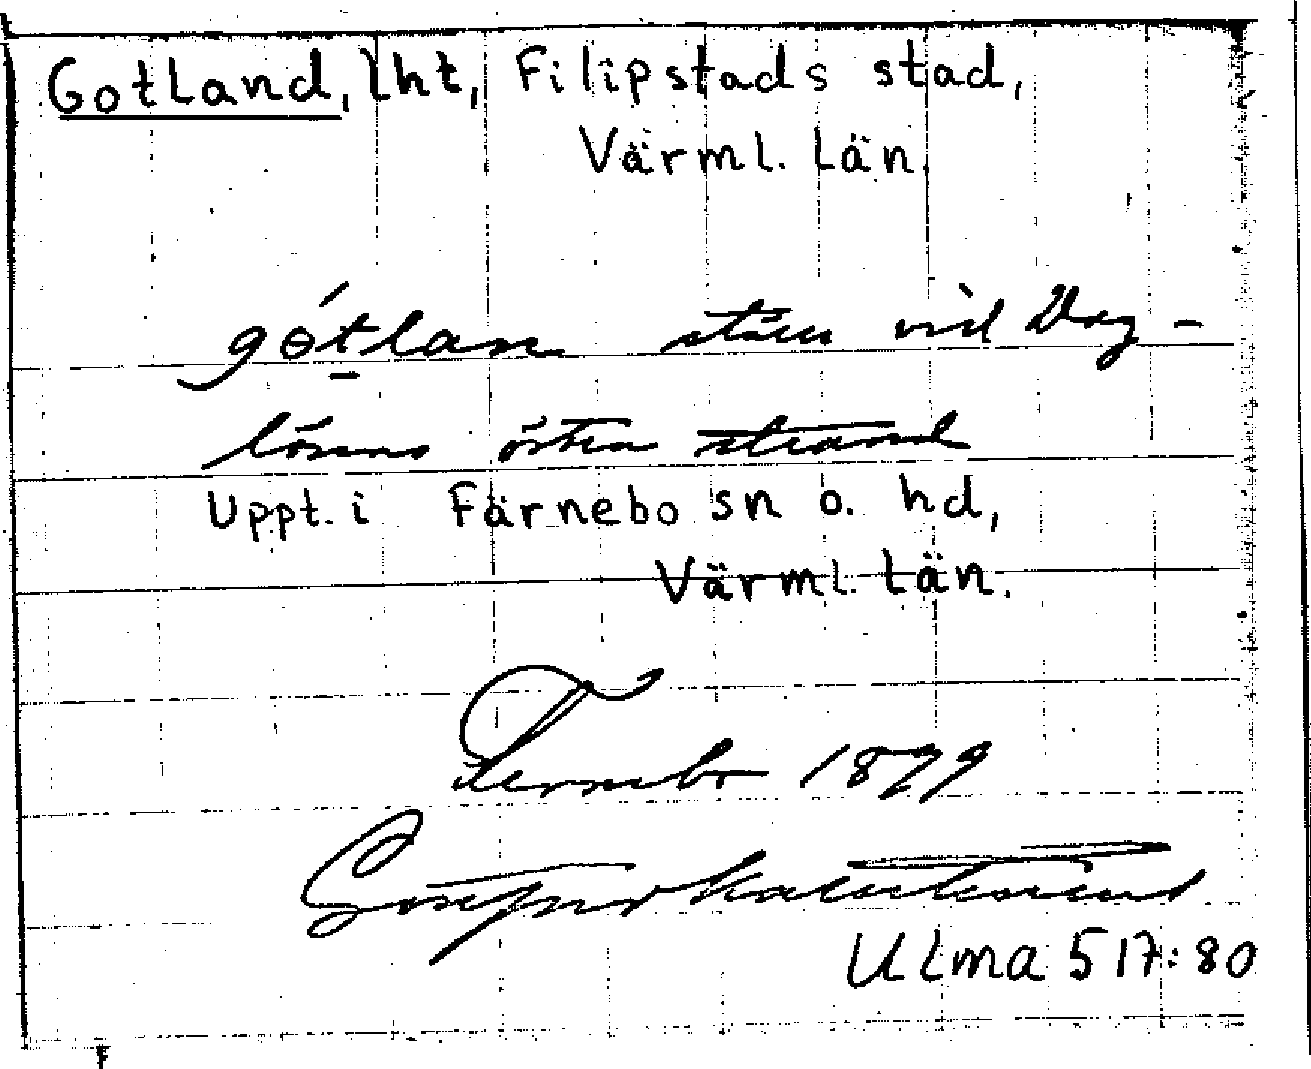 Gotland, lht, Filipstads stad,
Värml. Län.
gotlan ställe vid Dag-
lösens östra strand
Uppt. i Färnebo sn o. hd,
Värml. Län.
Fernebo 1879
Ulma 517:80